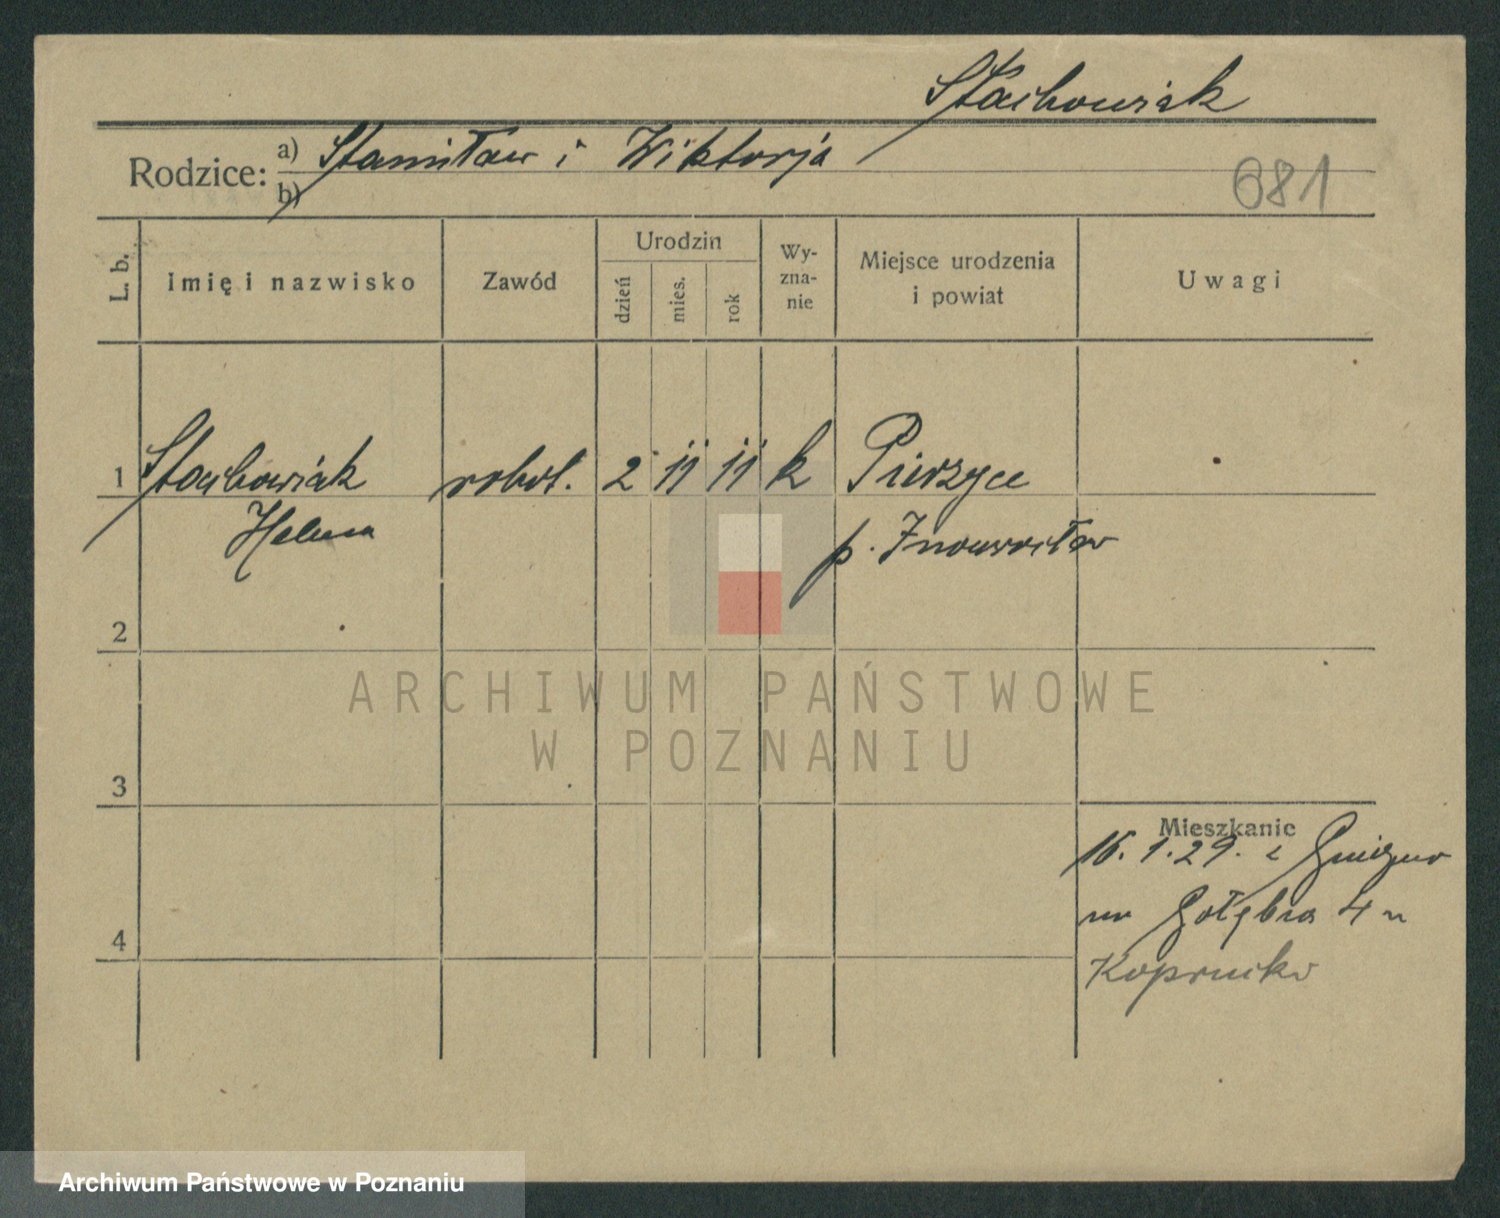 Stachowiak
Rodzice: a) Stanisław i Wiktorja
b)
681
L. b.
Imię i nazwisko
Zawód
Urodzin
dzień
mies.
rok
Wy-
zna-
nie
Miejsce urodzenia
i powiat
Uwagi
1 Stachowiak robot. 2 11 11 k
Helena p. Inowrocław
2
3
4
Mieszkanie
16. 1. 29. z Gniezno
na Gołębia 4 u
ARCHIWUM PAŃSTWOWE
W POZNANIU
Archiwum Państwowe w Poznaniu